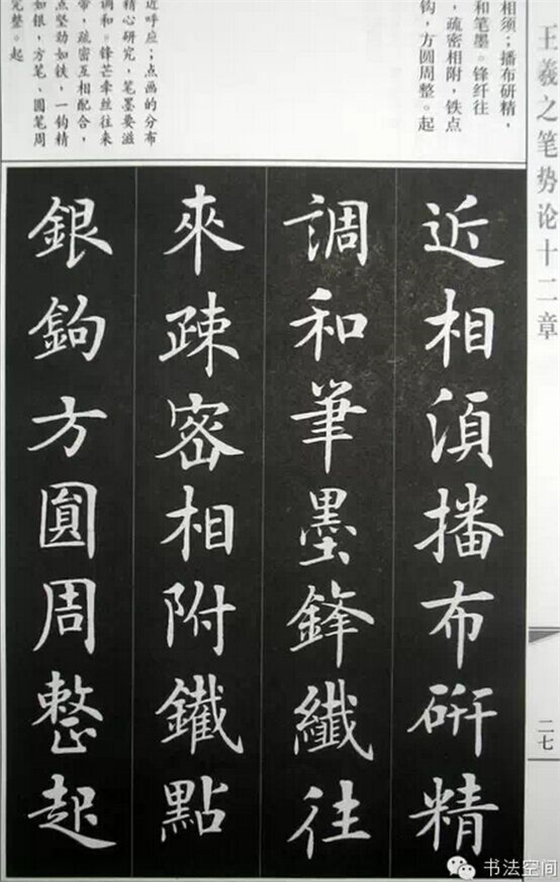 王羲之笔势论十二章
相须；播布研精，
和笔墨。锋纤往
，疏密相附，铁点
钩，方圆周整。起
近呼应；点画的分布
精心研究，笔墨要滋
调和。锋芒牵丝往来
带，疏密互相配合，
点坚劲如铁，一钩精
如银，方笔、圆笔周
完整。起
近相湏播布硏精
調和筆墨鋒纖往
來疎密相附鐵點
銀鉤方圓周整起
二七
书法空间